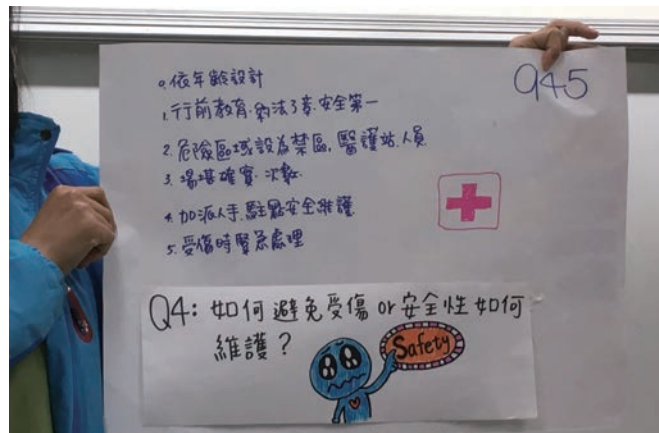 945
0.依年齡設計
1.行前教育.約法3章.安全第一
2.危險區域設為禁區,醫護站.人員
3.場堪確實.次數.
4.加派人手.駐點安全維護
5.受傷時緊急處理
Q4:如何避免受傷or安全性如何
維護?
Safety